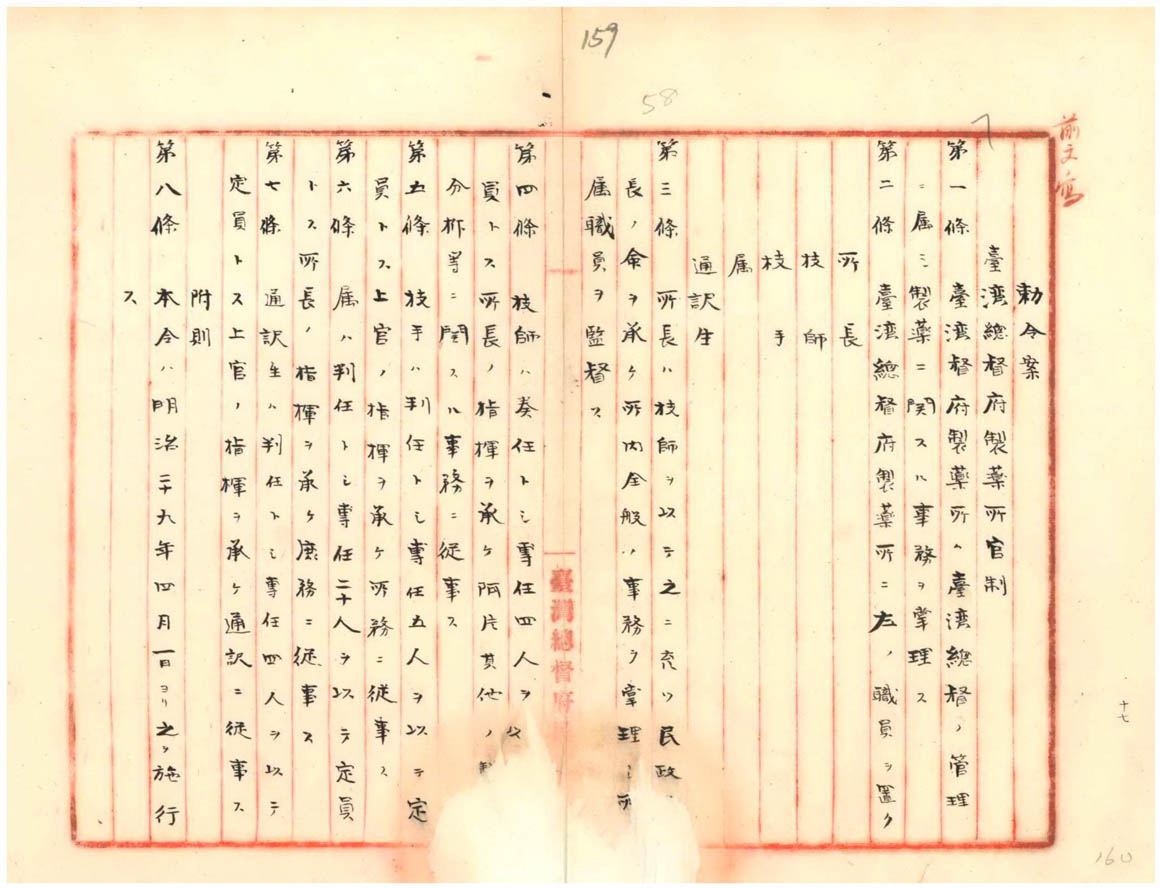 159
58
前文寫
勅令案
臺湾總督府製薬所官制
第一條 臺湾總督府製藥所ハ臺湾總督ノ管理
ニ属シ製藥ニ関スル事務ヲ掌理ス
第二條 臺湾總督府製薬所ニ左ノ職員ヲ置ク
所長
技師
技手
属
通訳生
第三條 所長ハ技師ヲ以テ之ニ充ツ民政
長ノ命ヲ承ケ所内全般ノ事務ヲ掌理シ所
属職員ヲ監督ス
臺灣總督府
第四條 技師ハ奏任トシ専任四人ヲ
員トス所長ノ指揮ヲ承ケ阿片其他ノ製
分析等ニ関スル事務ニ従事ス
第五條 技手ハ判任トシ専任五人ヲ以テ定
員トス上官ノ指揮ヲ承ケ所務ニ従事ス
第六條 属ハ判任トシ専任二十人ヲ以テ定員
トス所長ノ指揮ヲ承ケ庶務ニ従事ス
第七條 通訳生ハ判任トシ専任四人ヲ以テ
定員トス上官ノ指揮ヲ承ケ通訳ニ従事ス
附則
第八條 本令ハ明治二十九年四月一日ヨリ之ヲ施行
ス
十七
160